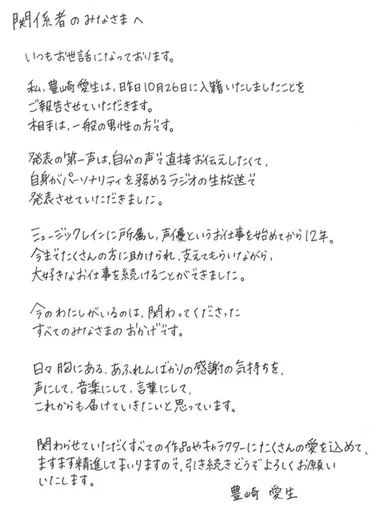 関係者のみなさまへ
いつもお世話になっております。
私、豊崎愛生は、昨日10月26日に入籍いたしましたことを
ご報告させていただきます。
相手は、一般の男性の方です。
発表の第一声は、自分の声で直接お伝えしたくて、
自身がパーソナリティを務めるラジオの生放送で
発表させていただきました。
ミュージックレインに所属し、声優というお仕事を始めてから12年。
今までたくさんの方に助けられ、支えてもらいながら、
大好きなお仕事を続けることができました。
今のわたしがいるのは、関わってくださった
すべてのみなさまのおかげです。
日々胸にある、あふれんばかりの感謝の気持ちを、
声にして、音楽にして、言葉にして、
これからも届けていきたいと思っています。
関わらせていただくすべての作品やキャラクターにたくさんの愛を込めて、
ますます精進してまいりますので、引き続きどうぞよろしくお願い
いたします。
豊崎 愛生